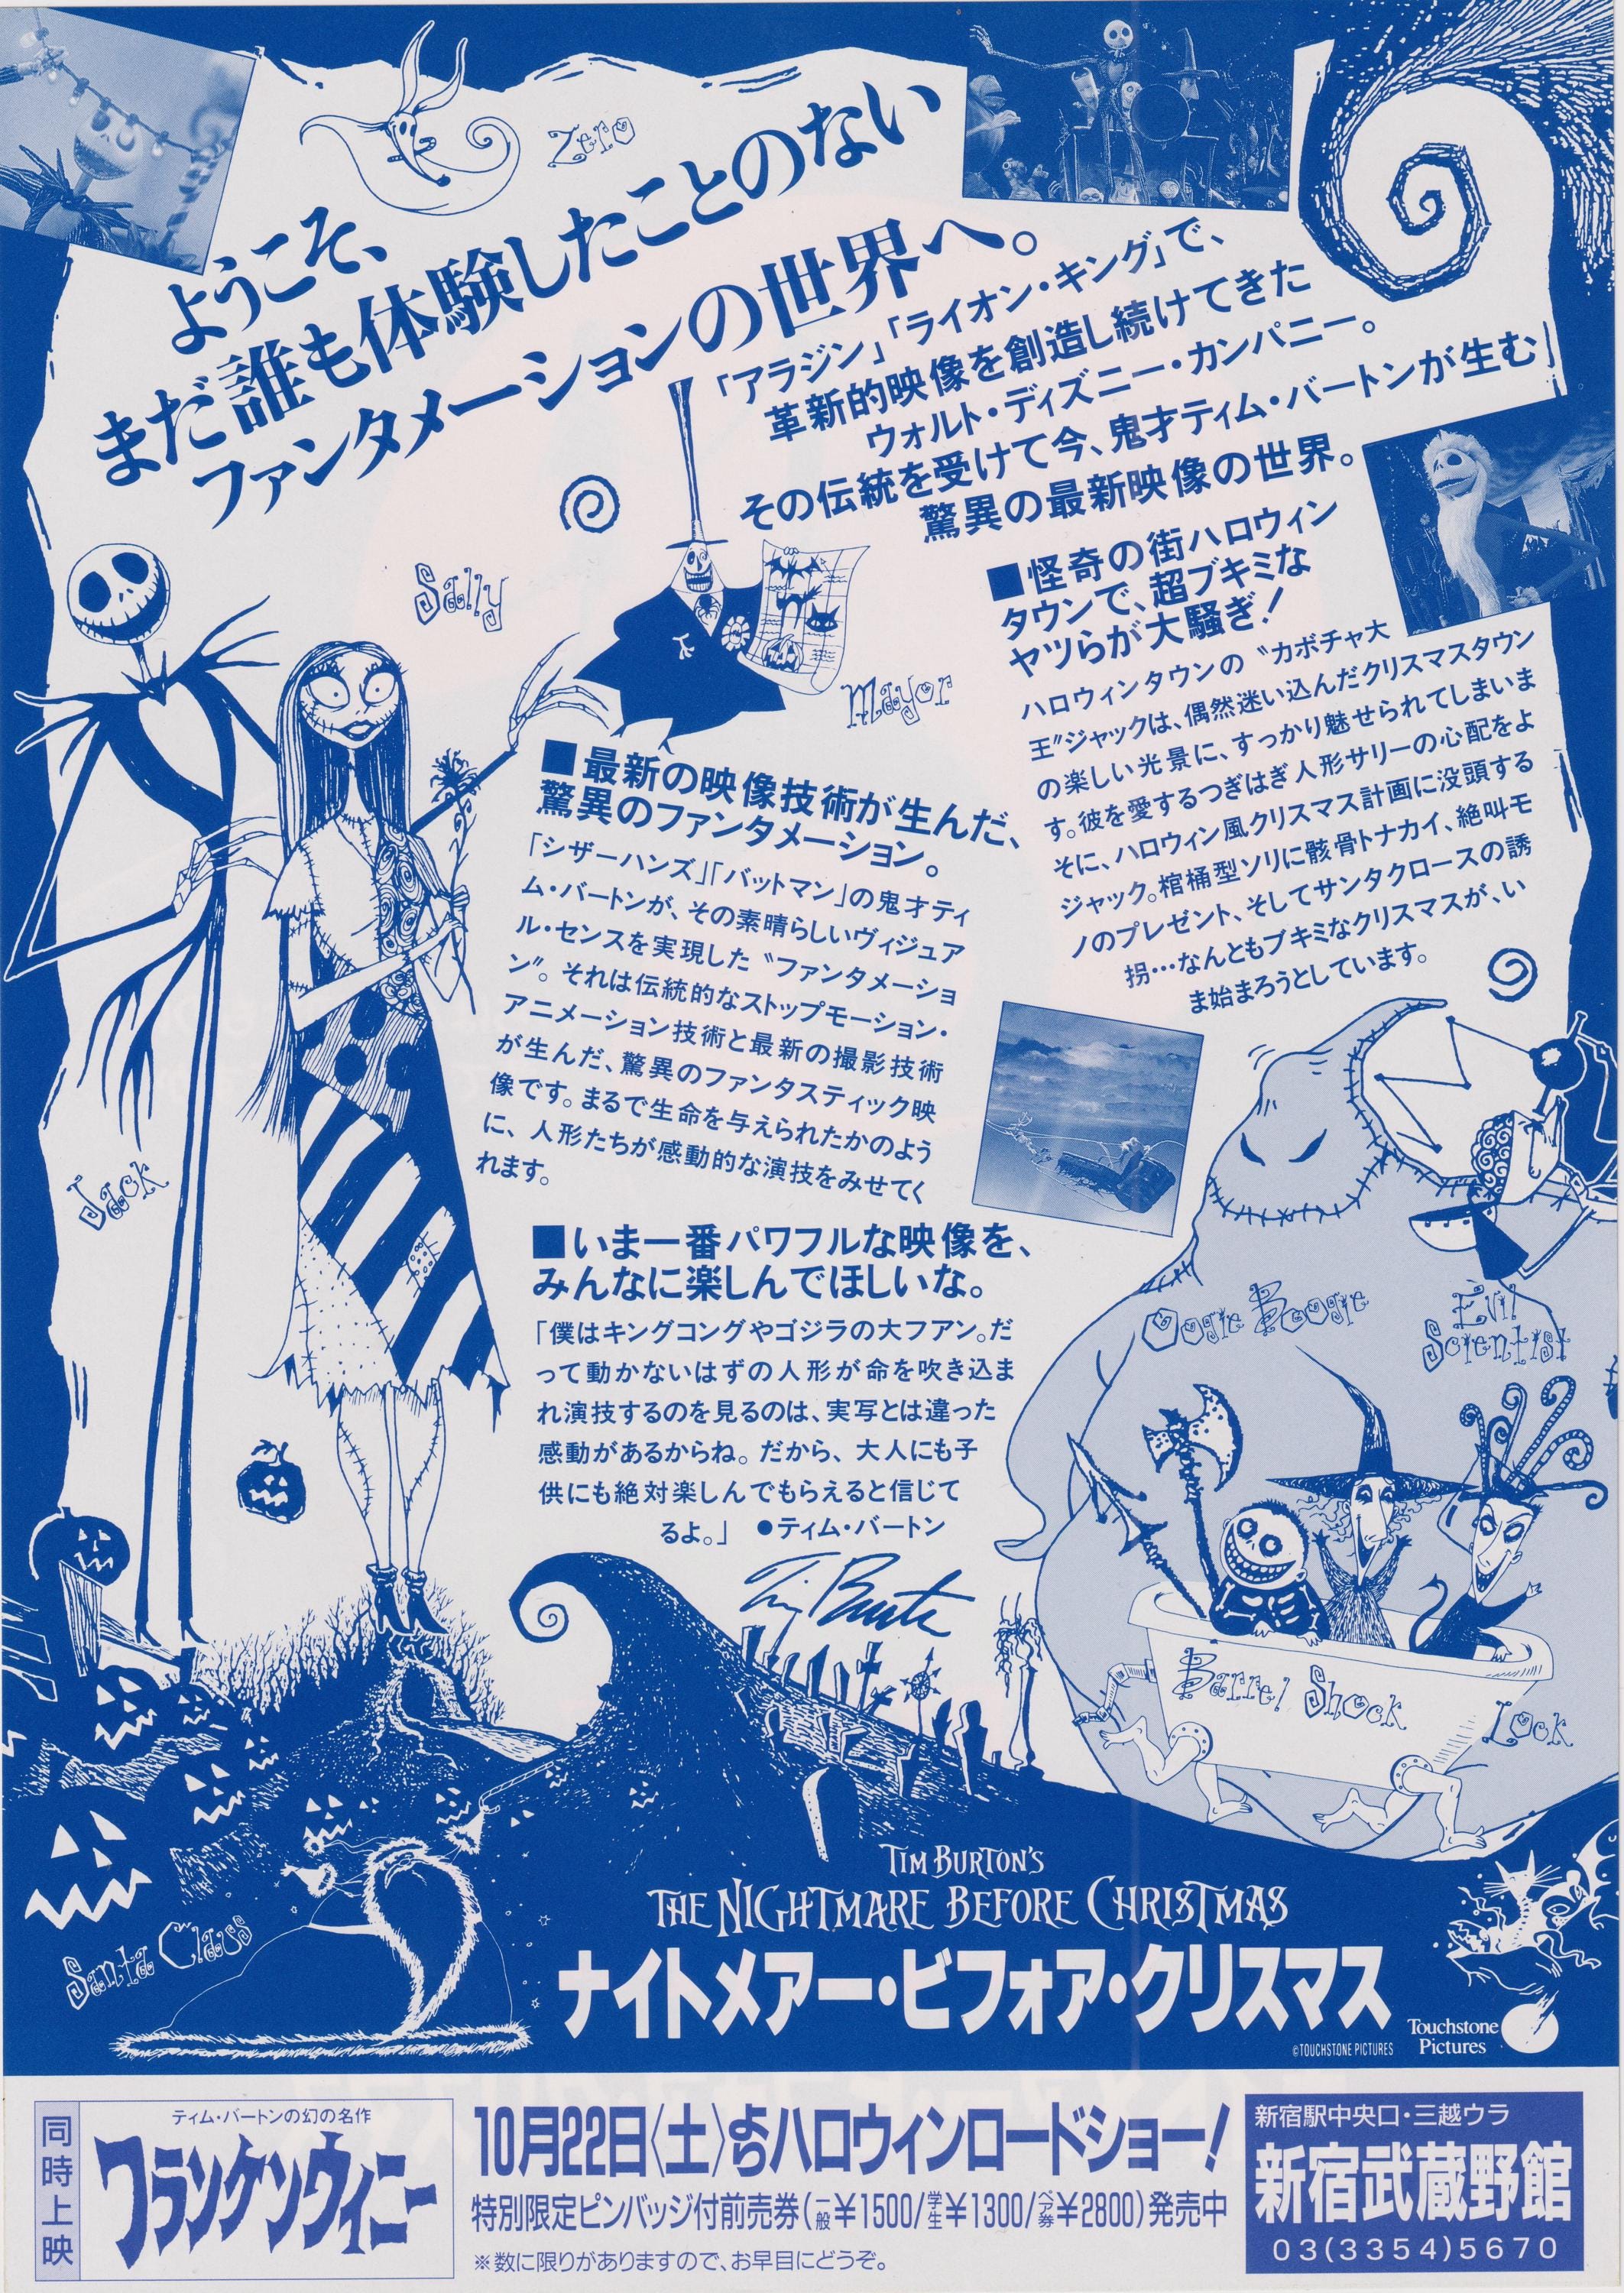 Zero
ようこそ、
まだ誰も体験したことのない
ファンタメーションの世界へ。
「アラジン」「ライオン・キング」で、
革新的映像を創造し続けてきた
ウォルト・ディズニー・カンパニー。
その伝統を受けて今、鬼才ティム・バートンが生む
驚異の最新映像の世界。
Sally
Mayor
Jack
■怪奇の街ハロウィン
タウンで、超ブキミな
ヤツらが大騒ぎ!
ハロウィンタウンの〝カボチャ大
王〟ジャックは、偶然迷い込んだクリスマスタウン
の楽しい光景に、すっかり魅せられてしまいま
す。彼を愛するつぎはぎ人形サリーの心配をよ
そに、ハロウィン風クリスマス計画に没頭する
ジャック。棺桶型ソリに骸骨トナカイ、絶叫モ
ノのプレゼント、そしてサンタクロースの誘
拐…なんともブキミなクリスマスが、い
ま始まろうとしています。
■最新の映像技術が生んだ、
驚異のファンタメーション。
「シザーハンズ」「バットマン」の鬼才ティ
ム・バートンが、その素晴らしいヴィジュア
ル・センスを実現した〝ファンタメーショ
ン〟。それは伝統的なストップモーション・
アニメーション技術と最新の撮影技術
が生んだ、驚異のファンタスティック映
像です。まるで生命を与えられたかのよう
に、人形たちが感動的な演技をみせてく
れます。
■いま一番パワフルな映像を、
みんなに楽しんでほしいな。
「僕はキングコングやゴジラの大フアン。だ
って動かないはずの人形が命を吹き込ま
れ演技するのを見るのは、実写とは違った
感動があるからね。だから、大人にも子
供にも絶対楽しんでもらえると信じて
るよ。」 ●ティム・バートン
Tim Burton
Oogie Boogie
Evil
Scientist
Barrel Shock
Lock
Santa Claus
TIM BURTON'S
THE NIGHTMARE BEFORE CHRISTMAS
ナイトメアー・ビフォア・クリスマス
©TOUCHSTONE PICTURES
Touchstone
Pictures
同時上映
ティム・バートンの幻の名作
フランケンウィニー
10月22日〈土〉よりハロウィンロードショー!
特別限定ピンバッジ付前売券(一般¥1500/学生¥1300/ペア券¥2800)発売中
※数に限りがありますので、お早目にどうぞ。
新宿駅中央口・三越ウラ
新宿武蔵野館
03(3354)5670